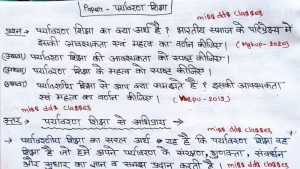 Paper - पर्यावरण शिक्षा
miss dds classes
प्रश्न - पर्यावरण शिक्षा का क्या अर्थ है? भारतीय समाज के परिप्रेक्ष्य में
इसकी आवश्यकता एवं महत्व का वर्णन कीजिए। (Mgkvp-2020)
(अथवा) पर्यावरण शिक्षा की आवश्यकता को स्पष्ट कीजिए।
(अथवा) पर्यावरण शिक्षा के महत्व को स्पष्ट कीजिए। miss dds classes
(अथवा) पर्यावरणीय शिक्षा से आप क्या समझते हैं? इसकी आवश्यकता
एवं महत्व का वर्णन कीजिए। 2019)
miss dds classes
उत्तर - पर्यावरण शिक्षा से अभिप्राय miss dds classes
पर्यावरणीय शिक्षा का सरल अर्थ यह है कि पर्यावरण शिक्षा वह
शिक्षा है जो हमें अपने पर्यावरण के संरक्षण, गुणवत्ता, संवर्धन
और सुधार का ज्ञान व समझ प्रदान करती है। miss dds